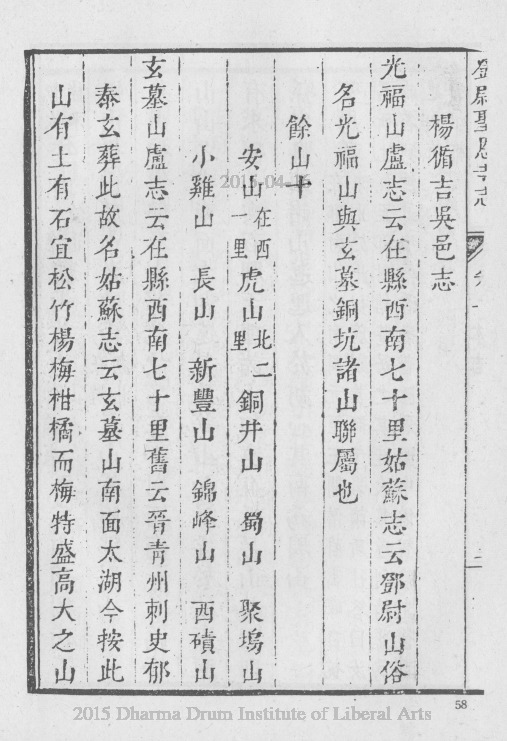 鄧尉聖恩寺志
楊循吉吳邑志
光福山盧志云在縣西南七十里姑蘇志云鄧尉山俗
名光福山與玄墓銅坑諸山聯屬也
餘山十
安山在西一里虎山北二里銅井山 蜀山 聚塢山
小雞山 長山 新豐山 錦峰山 西磧山
玄墓山盧志云在縣西南七十里舊云晉青州刺史郁
泰玄葬此故名姑蘇志云玄墓山南面太湖今按此
山有土有石宜松竹楊梅柑橘而梅特盛高大之山
2015-04-16
58
2015 Dharma Drum Institute of Liberal Arts